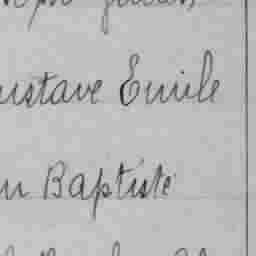 ustave Emile
n Baptiste